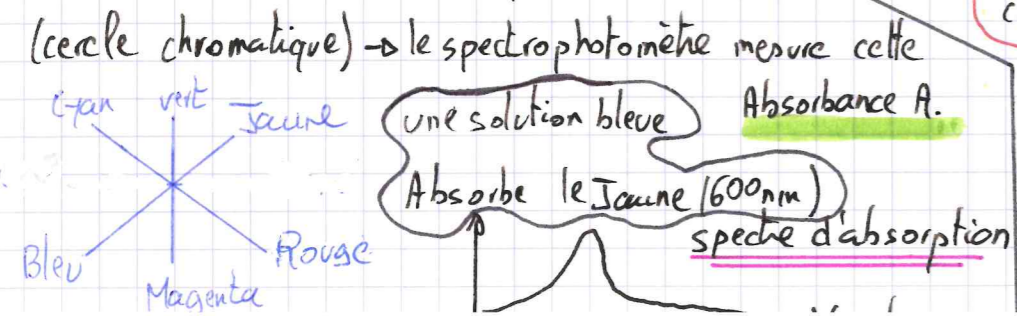 (cercle chromatique) → le spectrophotomètre mesure cette
Absorbance A.
Cyan vert Jaune
Bleu Magenta Rouge
une solution bleue
Absorbe le Jaune (600nm)
spectre d'absorption